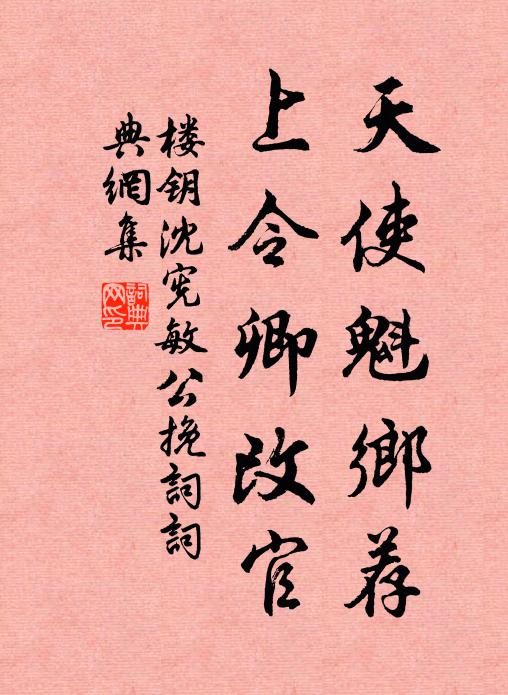 天使魁鄉荐
上令卿改官
楼钥沈宪敏公挽詞詞
典網集
詞典网印